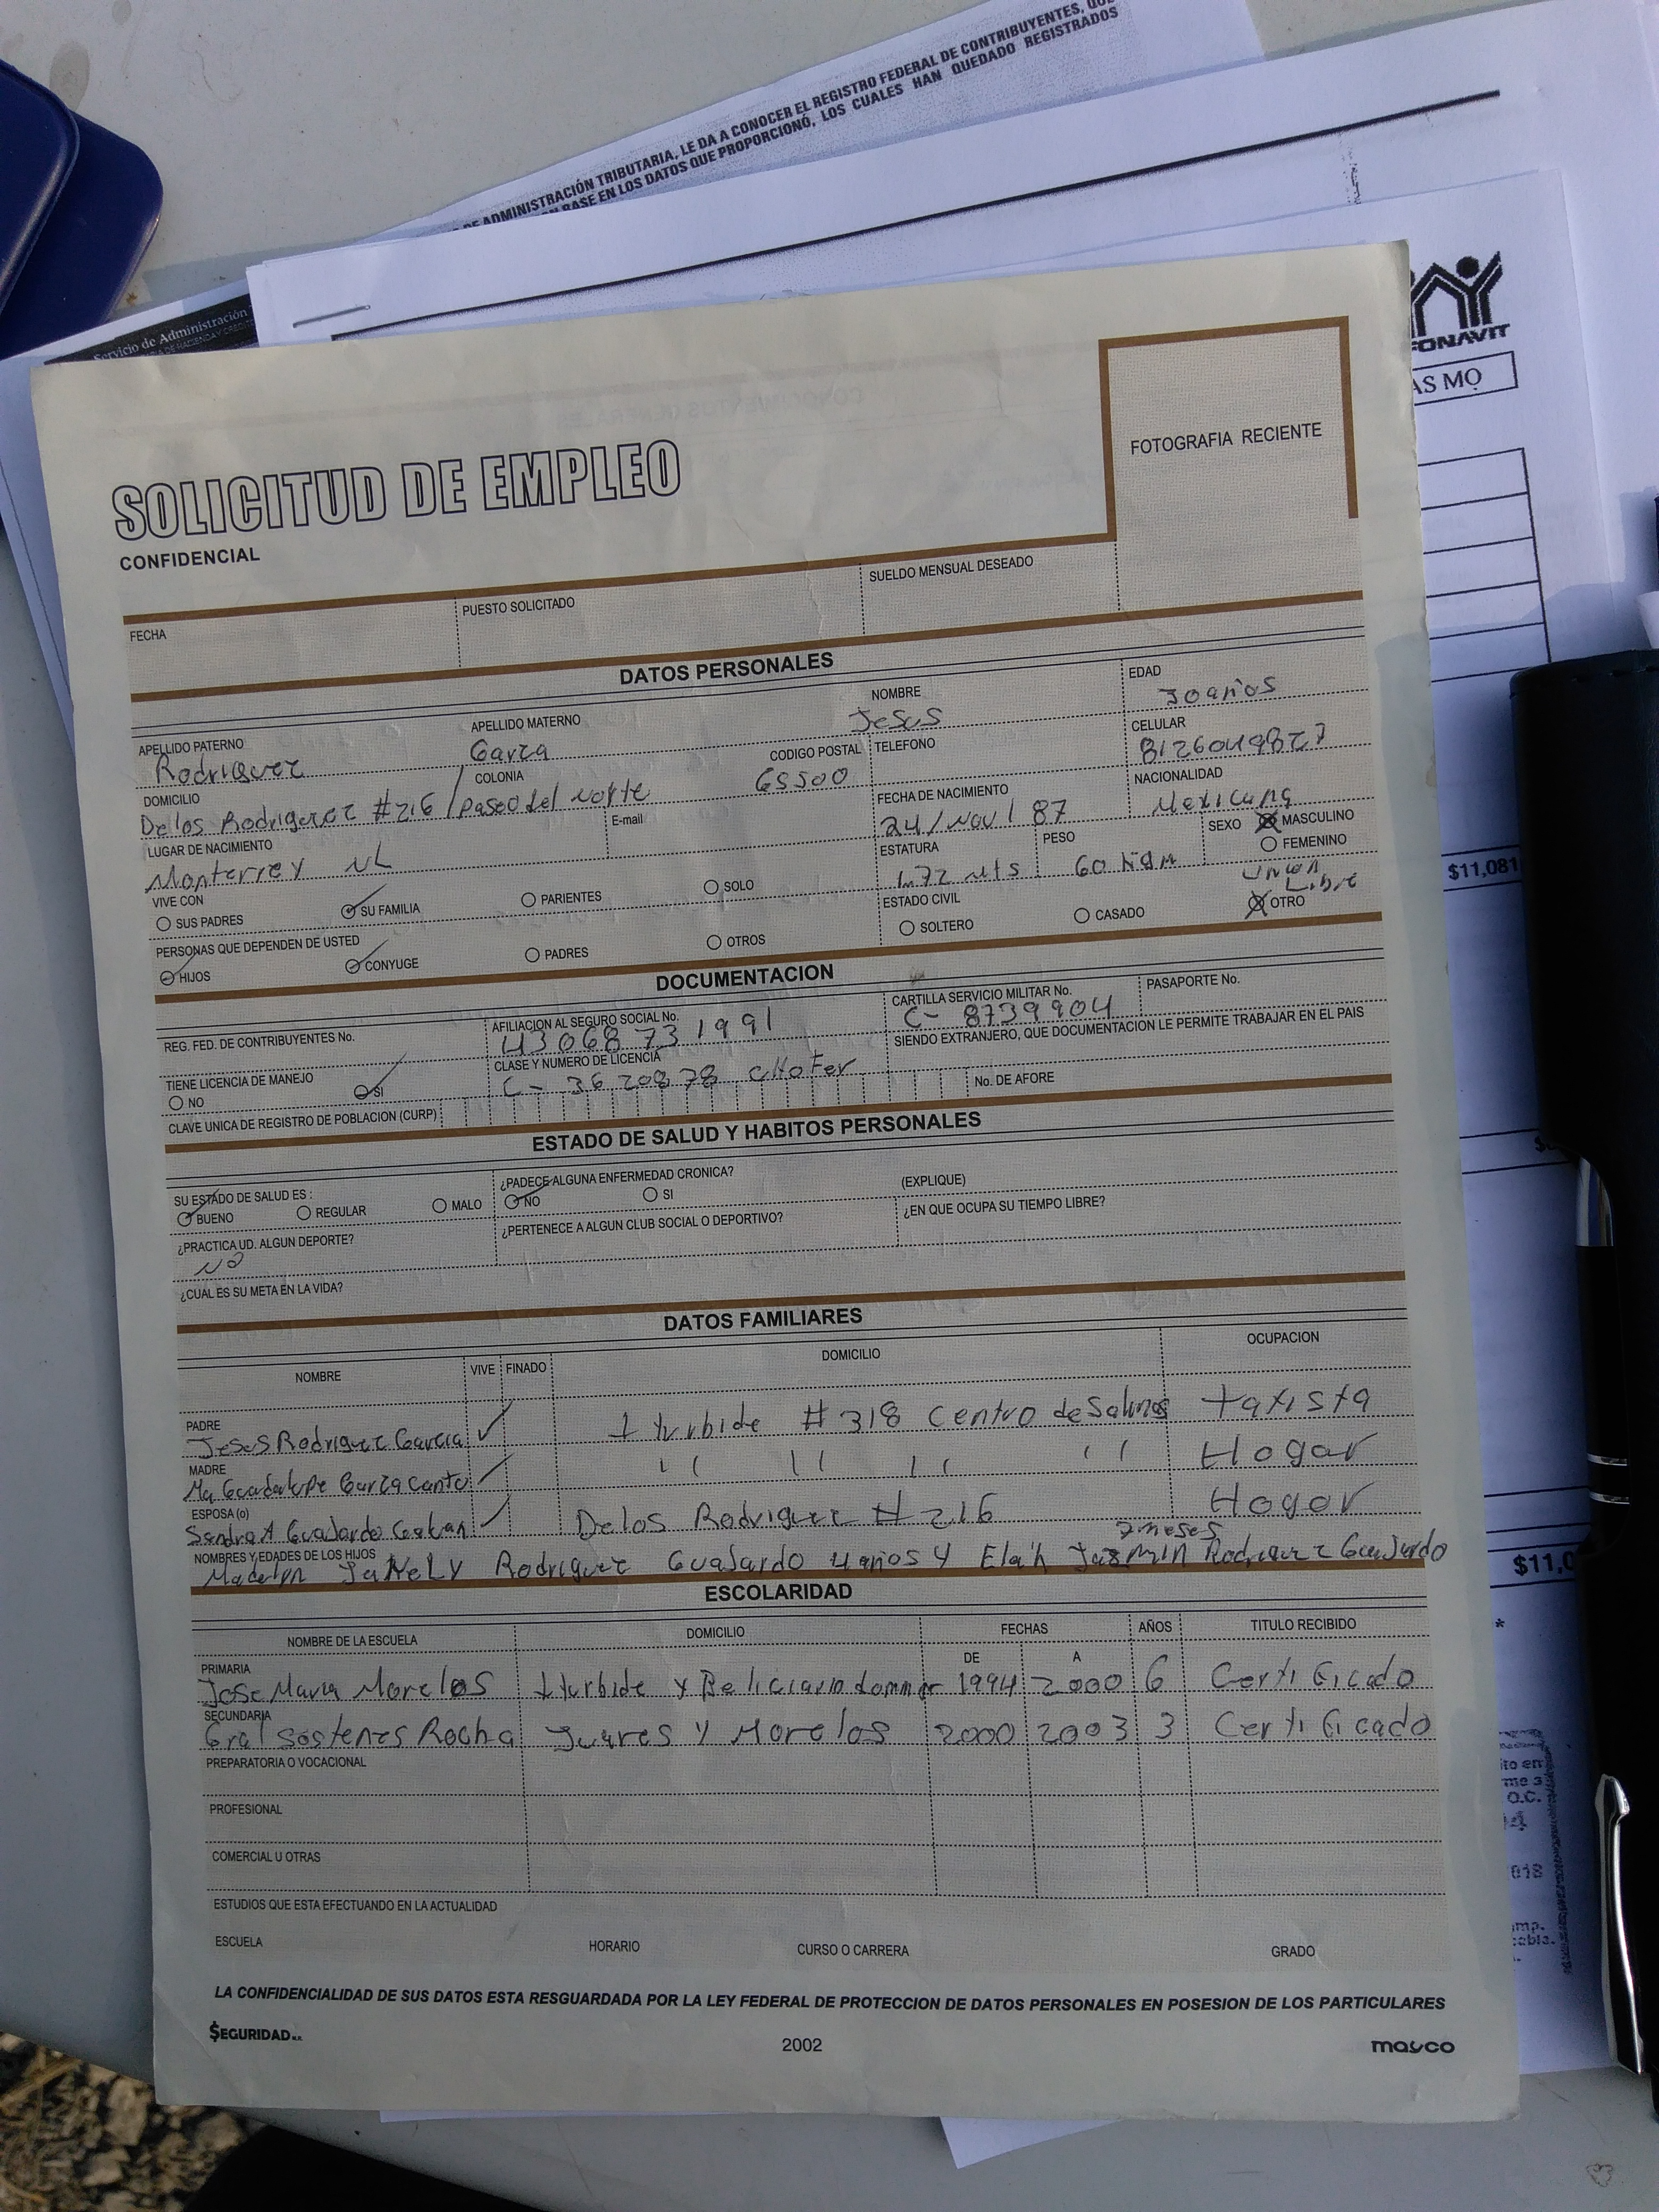 DE ADMINISTRACIÓN TRIBUTARIA, LE DA A CONOCER EL REGISTRO FEDERAL DE CONTRIBUYENTES,
BASE EN LOS DATOS QUE PROPORCIONÓ, LOS CUALES HAN QUEDADO REGISTRADOS
Servicio de Administración
FONAVIT
AS MO
SOLICITUD DE EMPLEO
CONFIDENCIAL
FOTOGRAFIA RECIENTE
FECHA
PUESTO SOLICITADO
SUELDO MENSUAL DESEADO
DATOS PERSONALES
APELLIDO PATERNO APELLIDO MATERNO NOMBRE EDAD
Rodriguez Garza Jesus 30 años
DOMICILIO COLONIA CODIGO POSTAL TELEFONO CELULAR
De los Rodriguez #216 / Paseo del Norte 65500 8126049827
LUGAR DE NACIMIENTO E-mail FECHA DE NACIMIENTO NACIONALIDAD
Monterrey NL 24/Nov/87 Mexicana
ESTATURA PESO SEXO MASCULINO
FEMENINO
1.72 mts 60
VIVE CON SUS PADRES SU FAMILIA PARIENTES SOLO
ESTADO CIVIL SOLTERO CASADO OTRO
Union
Libre
PERSONAS QUE DEPENDEN DE USTED
HIJOS CONYUGE PADRES OTROS
DOCUMENTACION
REG. FED. DE CONTRIBUYENTES No. AFILIACION AL SEGURO SOCIAL No. CARTILLA SERVICIO MILITAR No. PASAPORTE No.
43068731991 C- 8739904
TIENE LICENCIA DE MANEJO CLASE Y NUMERO DE LICENCIA SIENDO EXTRANJERO, QUE DOCUMENTACION LE PERMITE TRABAJAR EN EL PAIS
NO SI C- 3620878 CHOFer
CLAVE UNICA DE REGISTRO DE POBLACION (CURP) No. DE AFORE
ESTADO DE SALUD Y HABITOS PERSONALES
SU ESTADO DE SALUD ES : ¿PADECE ALGUNA ENFERMEDAD CRONICA? (EXPLIQUE)
BUENO REGULAR MALO NO SI
¿PRACTICA UD. ALGUN DEPORTE? ¿PERTENECE A ALGUN CLUB SOCIAL O DEPORTIVO? ¿EN QUE OCUPA SU TIEMPO LIBRE?
No
¿CUAL ES SU META EN LA VIDA?
DATOS FAMILIARES
NOMBRE VIVE FINADO DOMICILIO OCUPACION
PADRE
Jesus Rodriguez Garcia Iturbide #318 Centro de Salinas taxista
MADRE
Ma Guadalupe Garza Cantu '' '' '' '' Hogar
ESPOSA (o)
Sandra A Guajardo De los Rodriguez #216 Hogar
NOMBRES Y EDADES DE LOS HIJOS
7 meses
Rodriguez Guajardo 4 años y Jazmin Rodriguez Guajardo
ESCOLARIDAD
NOMBRE DE LA ESCUELA DOMICILIO FECHAS AÑOS TITULO RECIBIDO
DE A
PRIMARIA
Jose Maria Morelos Iturbide y 1994 2000 6 Certificado
SECUNDARIA
Gral Sostenes Rocha Juares y Morelos 2000 2003 3 Certificado
PREPARATORIA O VOCACIONAL
PROFESIONAL
COMERCIAL U OTRAS
ESTUDIOS QUE ESTA EFECTUANDO EN LA ACTUALIDAD
ESCUELA HORARIO CURSO O CARRERA GRADO
LA CONFIDENCIALIDAD DE SUS DATOS ESTA RESGUARDADA POR LA LEY FEDERAL DE PROTECCION DE DATOS PERSONALES EN POSESION DE LOS PARTICULARES
SEGURIDAD 2002 masco
$11,081